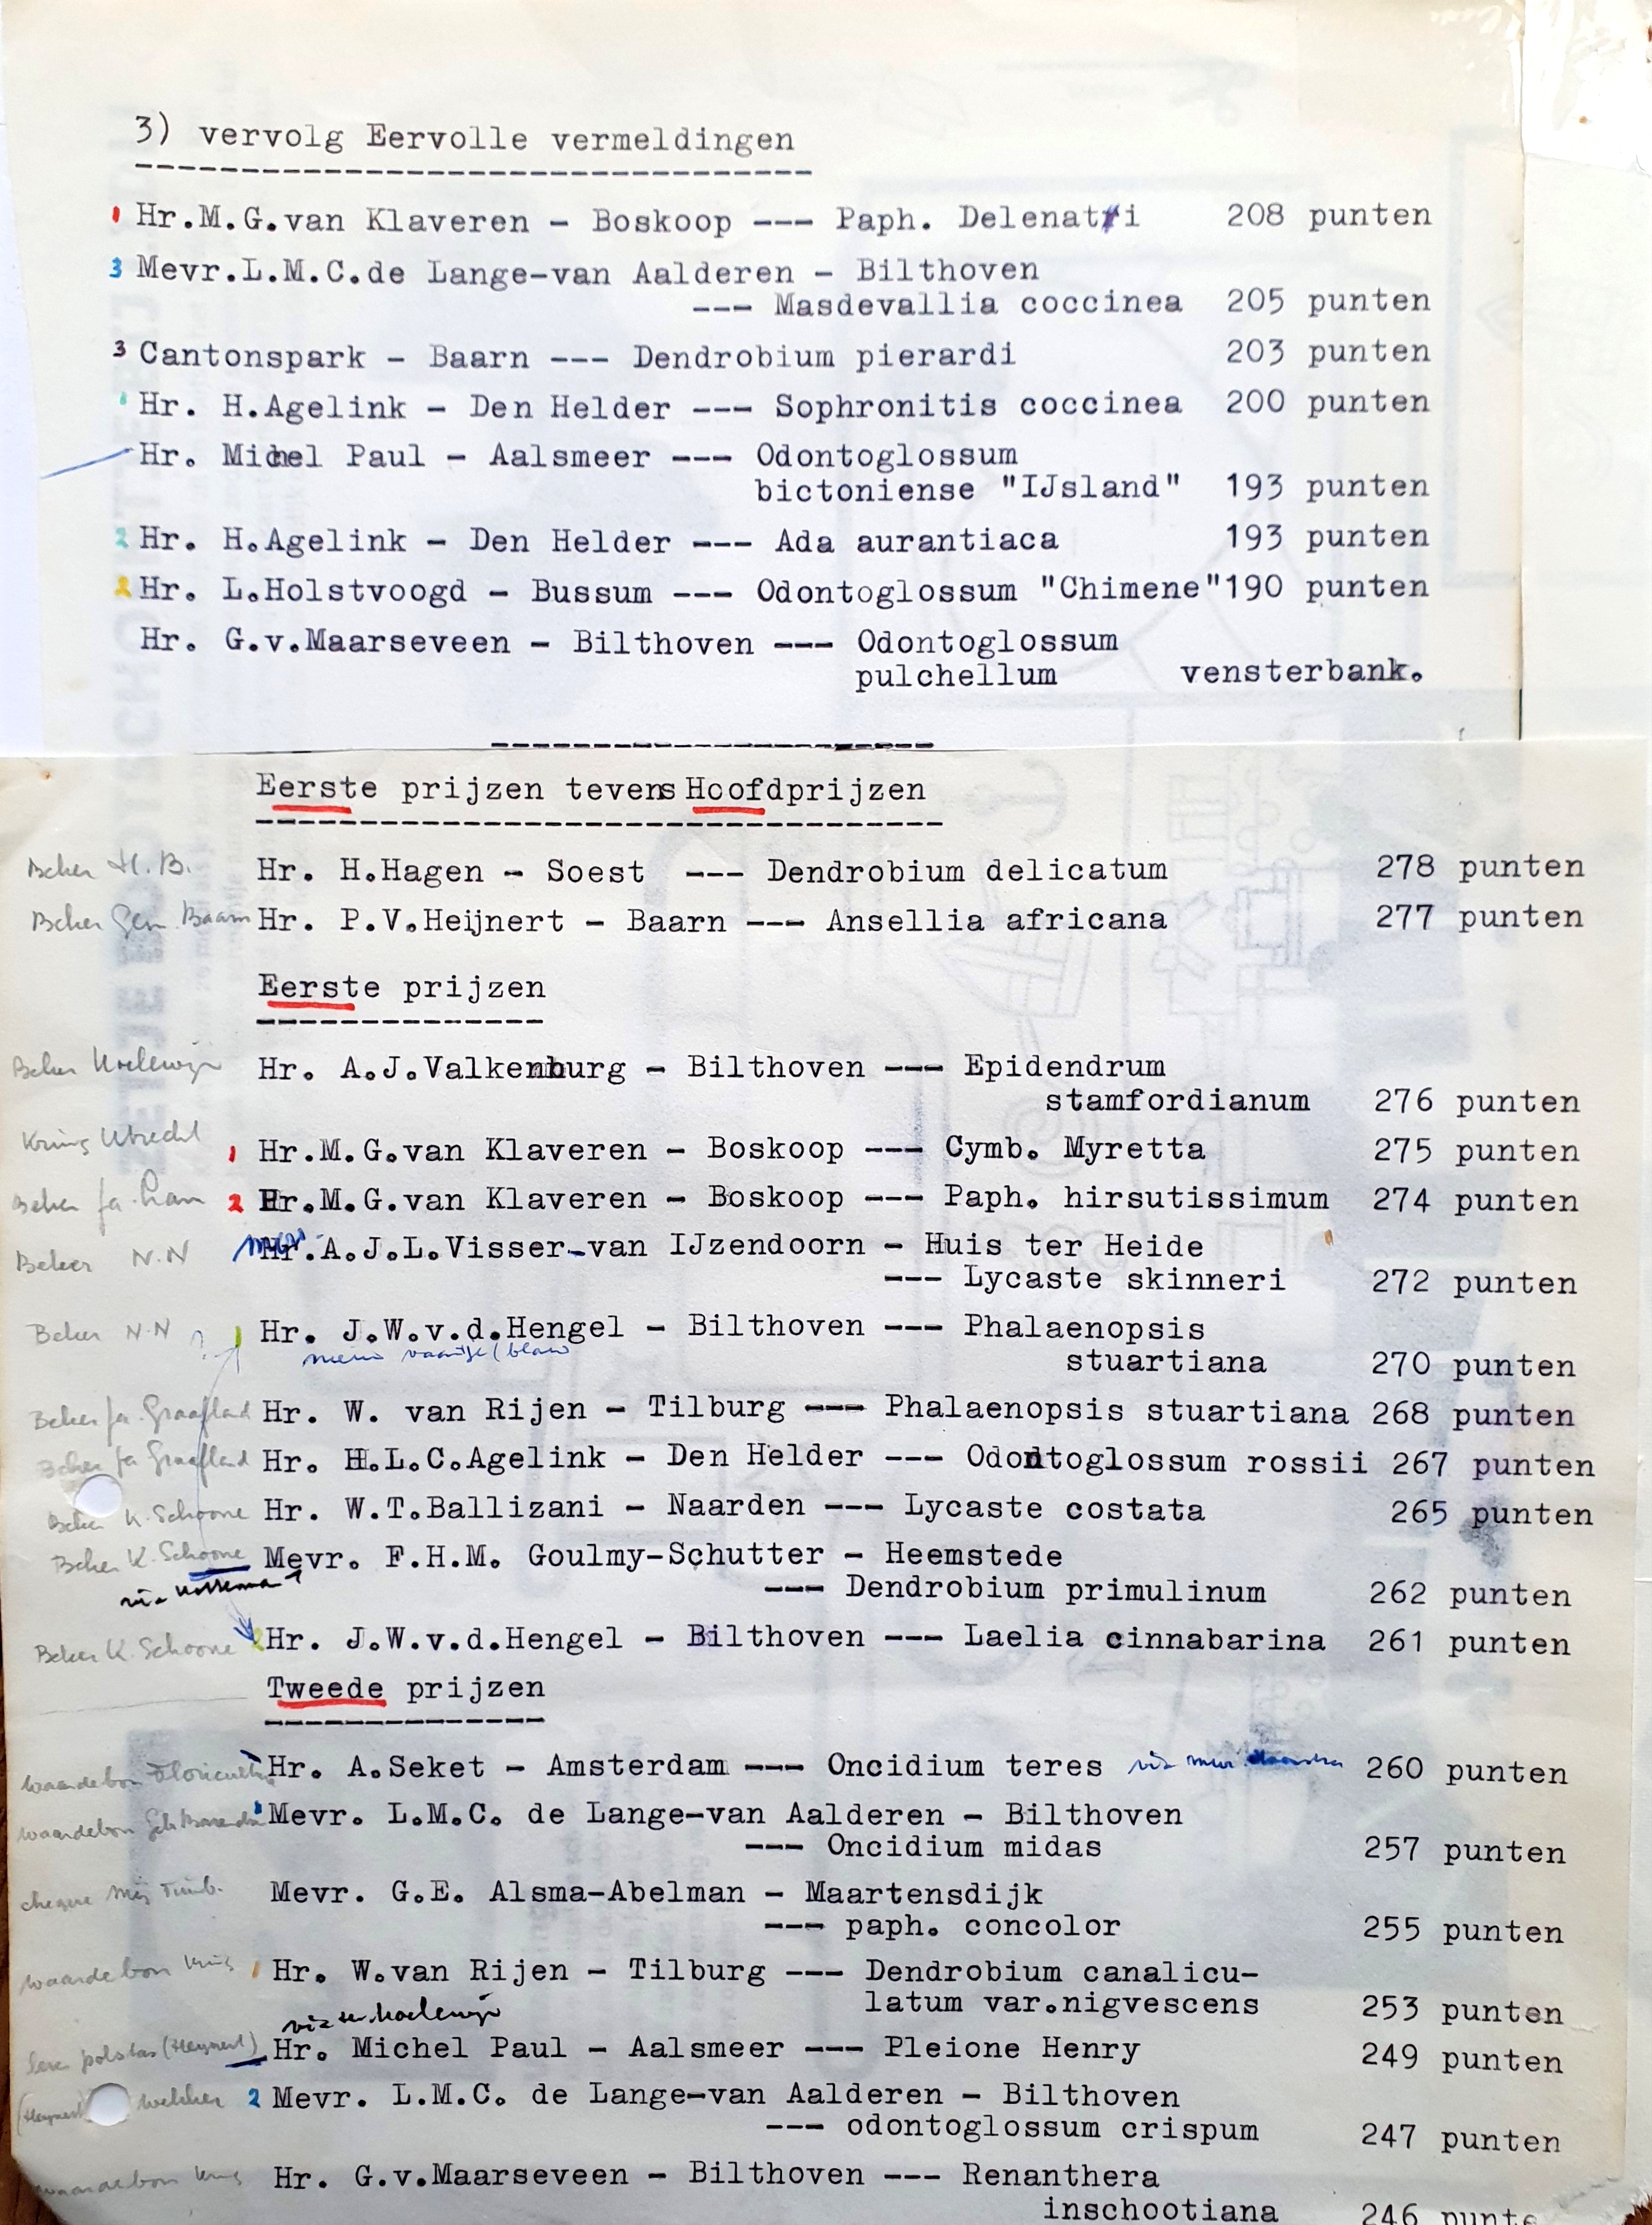 3) vervolg Eervolle vermeldingen
-----------------------------------
1 Hr.M.G.van Klaveren - Boskoop --- Paph. Delenatii 208 punten
3 Mevr.L.M.C.de Lange-van Aalderen - Bilthoven
--- Masdevallia coccinea 205 punten
3 Cantonspark - Baarn --- Dendrobium pierardi 203 punten
1 Hr. H.Agelink - Den Helder --- Sophronitis coccinea 200 punten
Hr. Michel Paul - Aalsmeer --- Odontoglossum
bictoniense "IJsland" 193 punten
2 Hr. H.Agelink - Den Helder --- Ada aurantiaca 193 punten
2 Hr. L.Holstvoogd - Bussum --- Odontoglossum "Chimene"190 punten
Hr. G.v.Maarseveen - Bilthoven --- Odontoglossum
pulchellum vensterbank.
-----------------------
Eerste prijzen tevens Hoofdprijzen
-----------------------------------
Beker H.B. Hr. H.Hagen - Soest --- Dendrobium delicatum 278 punten
Beker Gem. Baarn Hr. P.V.Heijnert - Baarn --- Ansellia africana 277 punten
Eerste prijzen
--------------
Beker Hr. A.J.Valkenburg - Bilthoven --- Epidendrum
stamfordianum 276 punten
Kring Utrecht 1 Hr.M.G.van Klaveren - Boskoop --- Cymb. Myretta 275 punten
Beker fa. 2 Hr.M.G.van Klaveren - Boskoop --- Paph. hirsutissimum 274 punten
Beker N.N Mevr.A.J.L.Visser-van IJzendoorn - Huis ter Heide
--- Lycaste skinneri 272 punten
Beker N.N ? 1 Hr. J.W.v.d.Hengel - Bilthoven --- Phalaenopsis
stuartiana 270 punten
Beker fa. Graafland Hr. W. van Rijen - Tilburg --- Phalaenopsis stuartiana 268 punten
Beker fa Graafland Hr. H.L.C.Agelink - Den Helder --- Odontoglossum rossii 267 punten
Beker K. Schoone Hr. W.T.Ballizani - Naarden --- Lycaste costata 265 punten
Beker K. Schoone Mevr. F.H.M. Goulmy-Schutter - Heemstede
--- Dendrobium primulinum 262 punten
Beker K. Schoone 2 Hr. J.W.v.d.Hengel - Bilthoven --- Laelia cinnabarina 261 punten
Tweede prijzen
--------------
waardebon Hr. A.Seket - Amsterdam --- Oncidium teres via mevr. 260 punten
waardebon Mevr. L.M.C. de Lange-van Aalderen - Bilthoven
--- Oncidium midas 257 punten
cheque Mevr. G.E. Alsma-Abelman - Maartensdijk
--- paph. concolor 255 punten
waardebon kring 1 Hr. W.van Rijen - Tilburg --- Dendrobium canalicu-
latum var.nigvescens 253 punten
(Heynert) Hr. Michel Paul - Aalsmeer --- Pleione Henry 249 punten
(Heynert) 2 Mevr. L.M.C. de Lange-van Aalderen - Bilthoven
--- odontoglossum crispum 247 punten
waardebon kring Hr. G.v.Maarseveen - Bilthoven --- Renanthera
inschootiana 246 punte